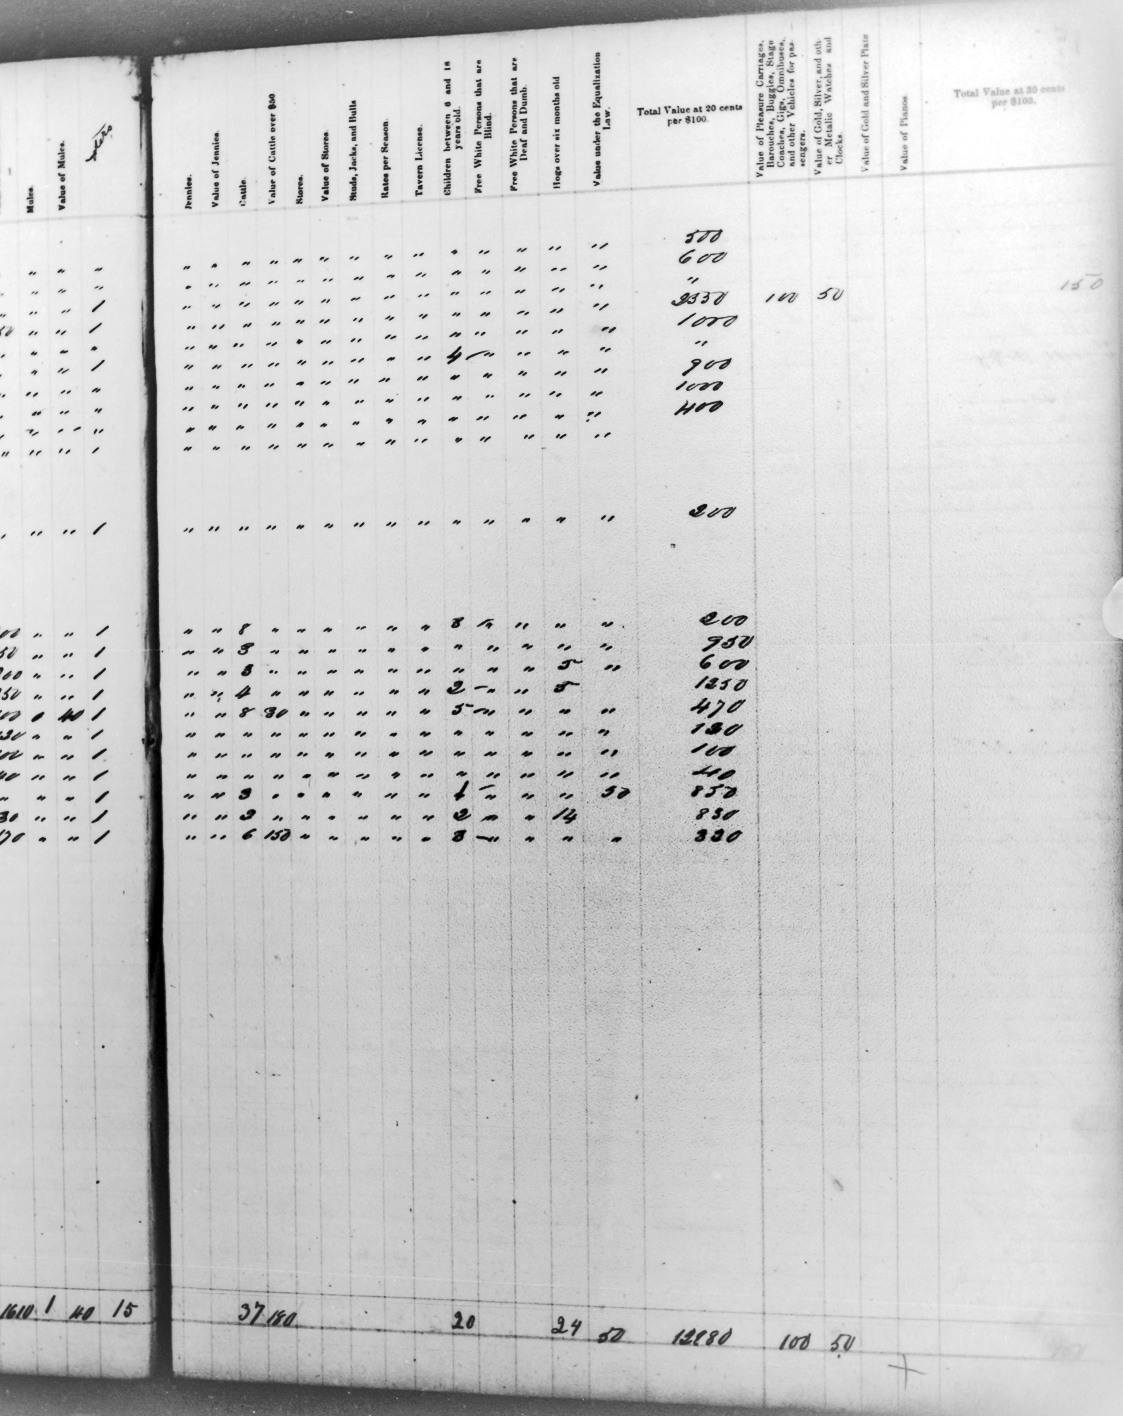 Mules.
Value of Mules.
Jennies.
Value of Jennies.
Cattle.
Value of Cattle over $50
Stores.
Value of Stores.
Studs, Jacks, and Bulls
Rates per Season.
Tavern License.
Children between 6 and 18 years old.
Free White Persons that are Blind.
Free White Persons that are Deaf and Dumb.
Hogs over six months old
Value under the Equalization Law.
Total Value at 20 cents per $100.
Value of Pleasure Carriages, Barouches, Buggies, Stage Coaches, Gigs, Omnibuses, and other Vehicles for passengers.
Value of Gold, Silver, and other Metalic Watches and Clocks.
Value of Gold and Silver Plate
Value of Pianos
Total Value at 30 cents per $100.
" " " " " " " " " " " " " " " " " " 500
" " " " " " " " " " " " " " " " " " 600
" " 1 " " " " " " " " " " " " " " " "
" " 1 " " " " " " " " " " " " " " " 2350 100 50 150
" " " " " " " " " " " " " " " " " " 1000
" " 1 " " " " " " " " " " " 4 " " " " "
" " " " " " " " " " " " " " " " " " 900
" " " " " " " " " " " " " " " " " " 1000
" " " " " " " " " " " " " " " " " " 400
" " 1 " " " " " " " " " " " " " " "
" " 1 " " " " " " " " " " " " " " " 200
" " 1 " " 8 " " " " " " " 3 " " " " 200
50 " " 1 " " 3 " " " " " " " " " " " " 950
" " 1 " " 3 " " " " " " " " " " 5 " 600
" " 1 " " 4 " " " " " " " 2 " " 5 1250
40 1 " " 8 30 " " " " " " 5 " " " " 470
" " 1 " " " " " " " " " " " " " " " 130
" " 1 " " " " " " " " " " " " " " " 100
40 " " 1 " " " " " " " " " " " " " " " 40
" " " 1 " " 3 " " " " " " " 1 " " " 50 850
" " 1 " " 2 " " " " " " " 2 " " 14 830
70 " " 1 " " 6 150 " " " " " " 3 " " " " 330
1610 1 40 15 37 180 20 24 50 12280 100 50